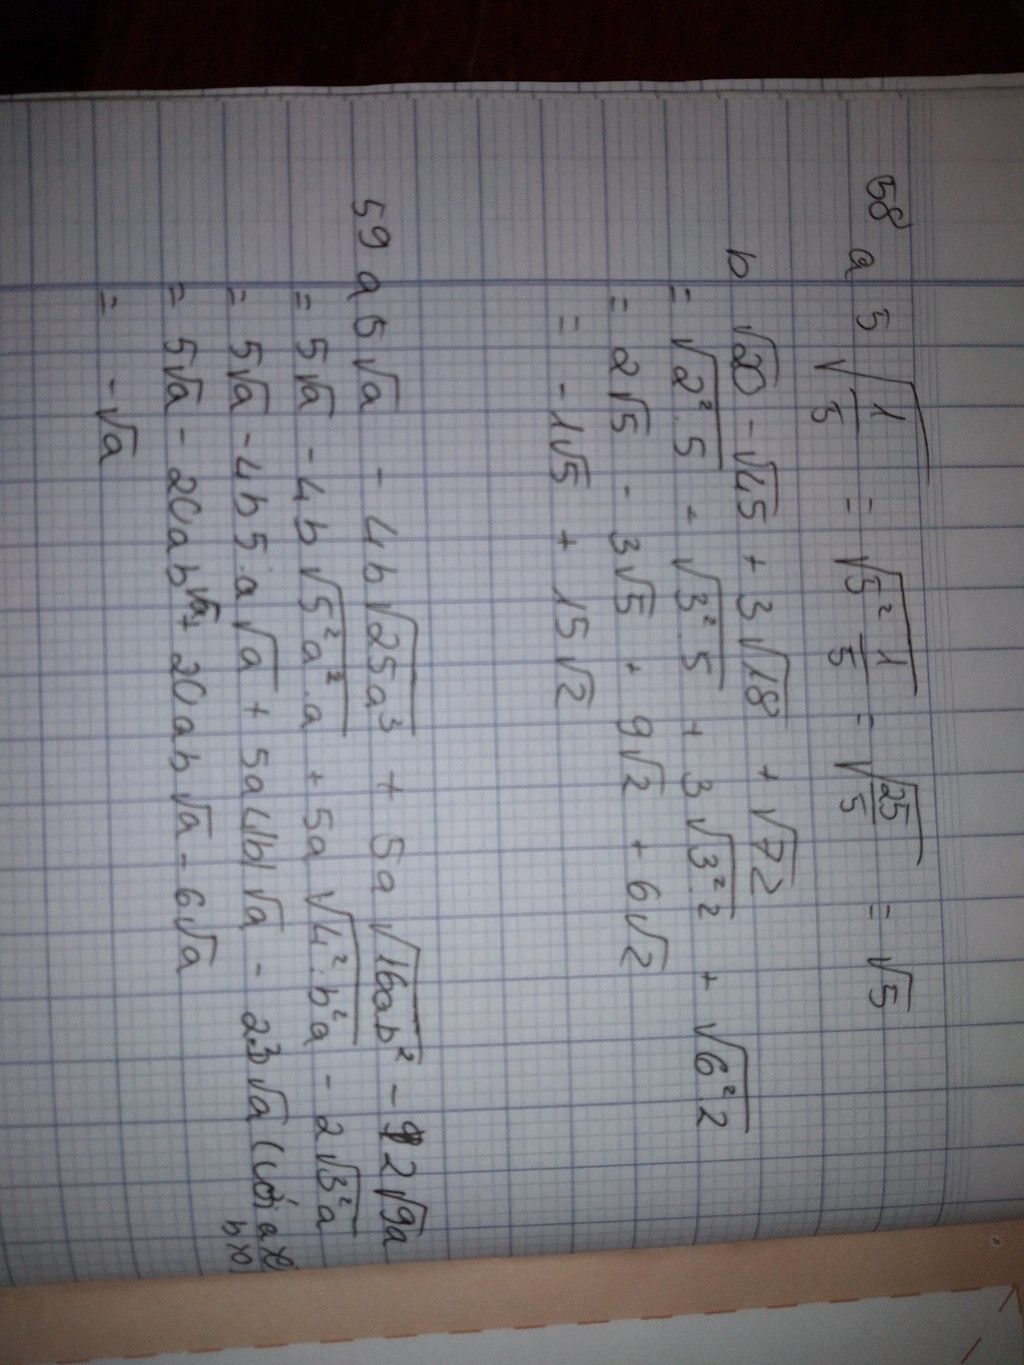 58 a 5√(1/5) = √(5² 1/5) = √(25/5) = √5
b √20 - √45 + 3√18 + √72
= √(2².5) - √(3².5) + 3√(3².2) + √(6².2)
= 2√5 - 3√5 + 9√2 + 6√2
= -1√5 + 15√2
59 a 5√a - 4b√(25a³) + 5a√(16ab²) - 2√(9a)
= 5√a - 4b√(5²a².a) + 5a√(4².b²a) - 2√(3²a)
= 5√a - 4b 5.a√a + 5a4|b|√a - 2.3√a (với a
b>0
= 5√a - 20ab√a + 20ab√a - 6√a
= -√a